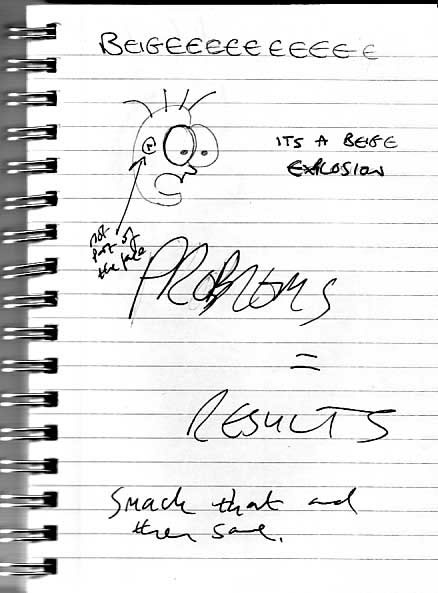 BEIGEEEEEEEEEE
ITS A BEIGE
EXPLOSION
not
part of
the face
PROBLEMS
=
RESULTS
Smack that and
then some.